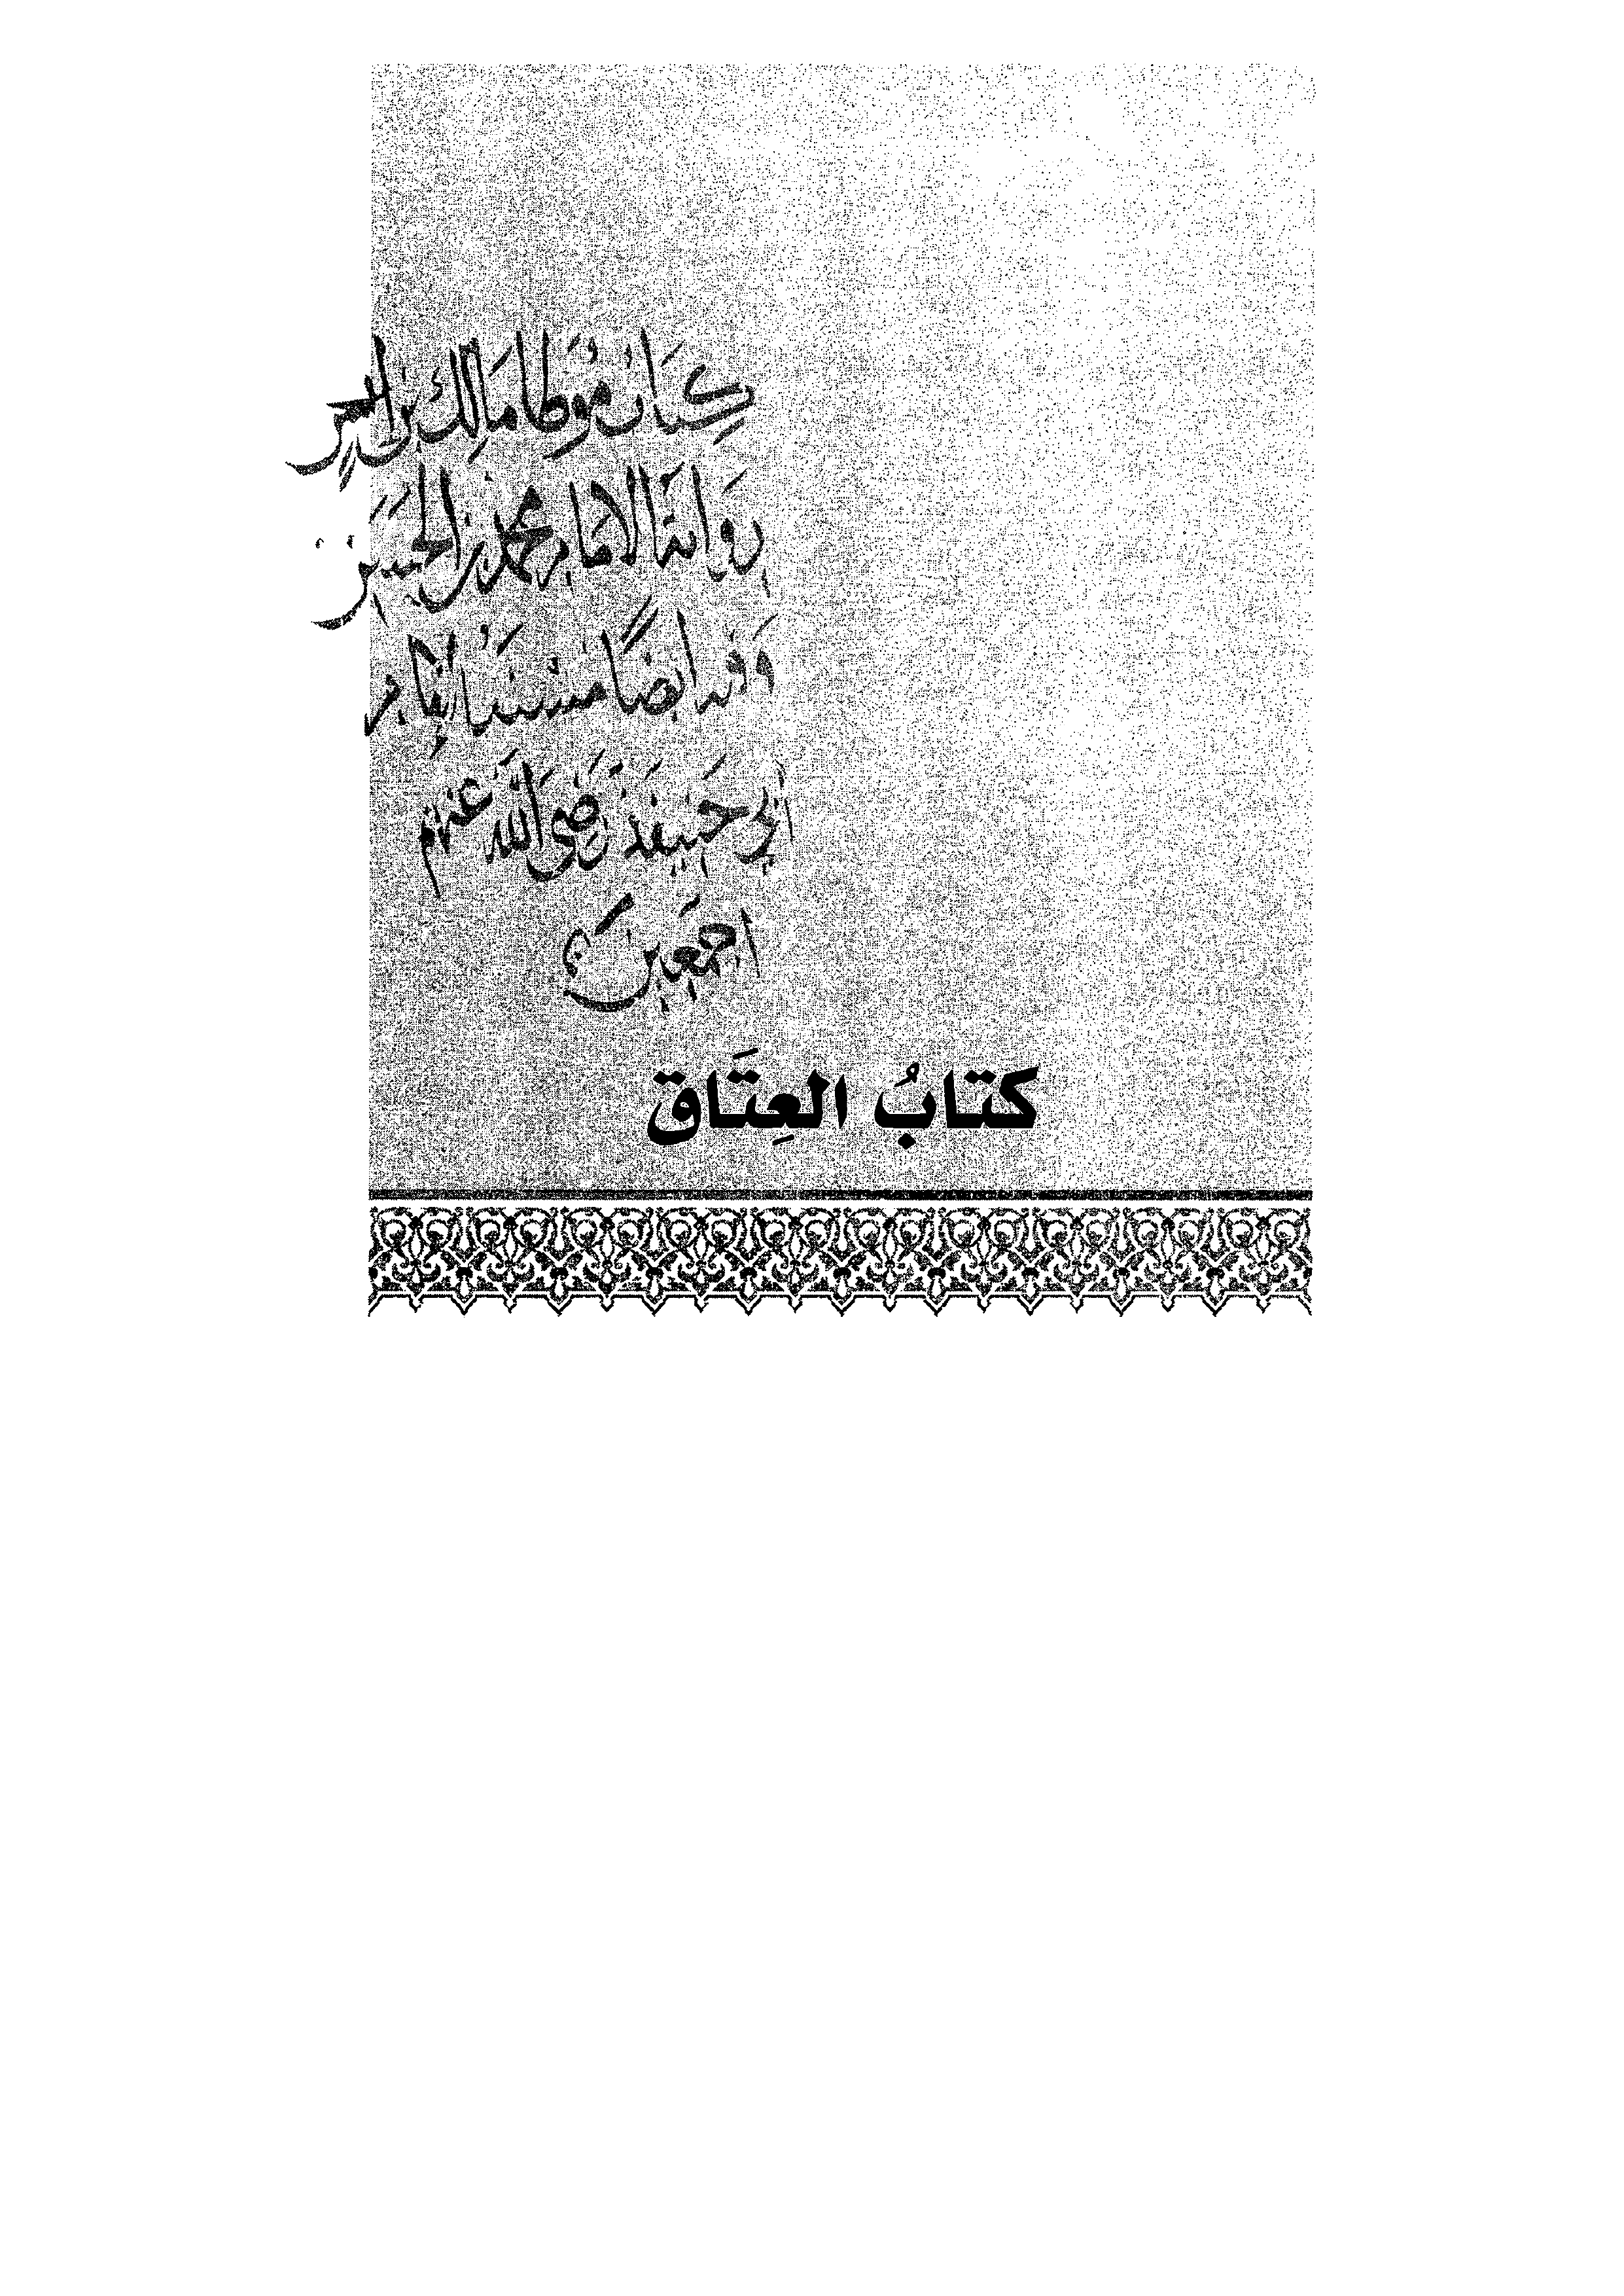 كتاب موطا مالك
رواية الامام محمد بن الحسن
وفيه ايضًا مسند الإمام
أبي حنيفة رضي الله عنهم
اجمعين
كتابُ العِتَاق